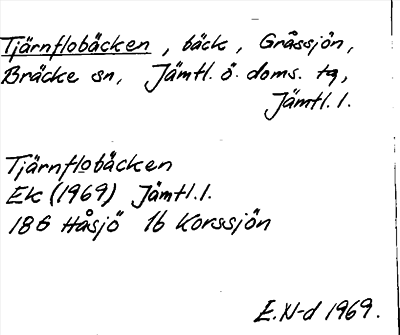 Tjärnflobäcken, bäck, Gråssjön,
Bräcke sn, Jämtl. ö. doms. tg,
Jämtl. l.
Tjärnflobäcken
Ek (1969) Jämtl. l.
18G Håsjö 1b Korssjön
E. N-d 1969.